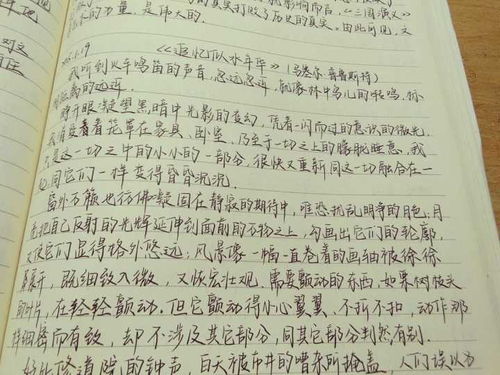 的真实打败了历史的真实。由此可见，文
的力量，是伟大的。
6.19 《追忆似水年华》（马塞尔·普鲁斯特）
我听到火车鸣笛的声音，忽远忽近，就像林中鸟儿的啭鸣，标
距离的远近。
睁开眼凝望黑暗中光影的变幻，凭着一闪而过的意识的微光，
着笼罩在家具、卧室、乃至于一切之上的朦胧睡意，我
这一切之中的小小的一部分，很快又重新同这一切融合在一
同它们一样变得昏昏沉沉。
窗外万籁也仿佛凝固在静寂的期待中，唯恐扰乱明净的月色；月
把自己反射的光辉延伸到面前的万物之上，勾画出它们的轮廓，
又使它们显得格外悠远；风景像一幅一直卷着的画轴被徐徐
展开，既细致入微，又恢宏壮观。需要颤动的东西，如果树枝头
的叶片，在轻轻颤动。但它颤动得小心翼翼、不折不扣，动作那
样细密而有致，却不涉及其它部分，同其它部分判然有别。
好比修道院的钟声，白天被市井的嘈杂所掩盖，人们误以为